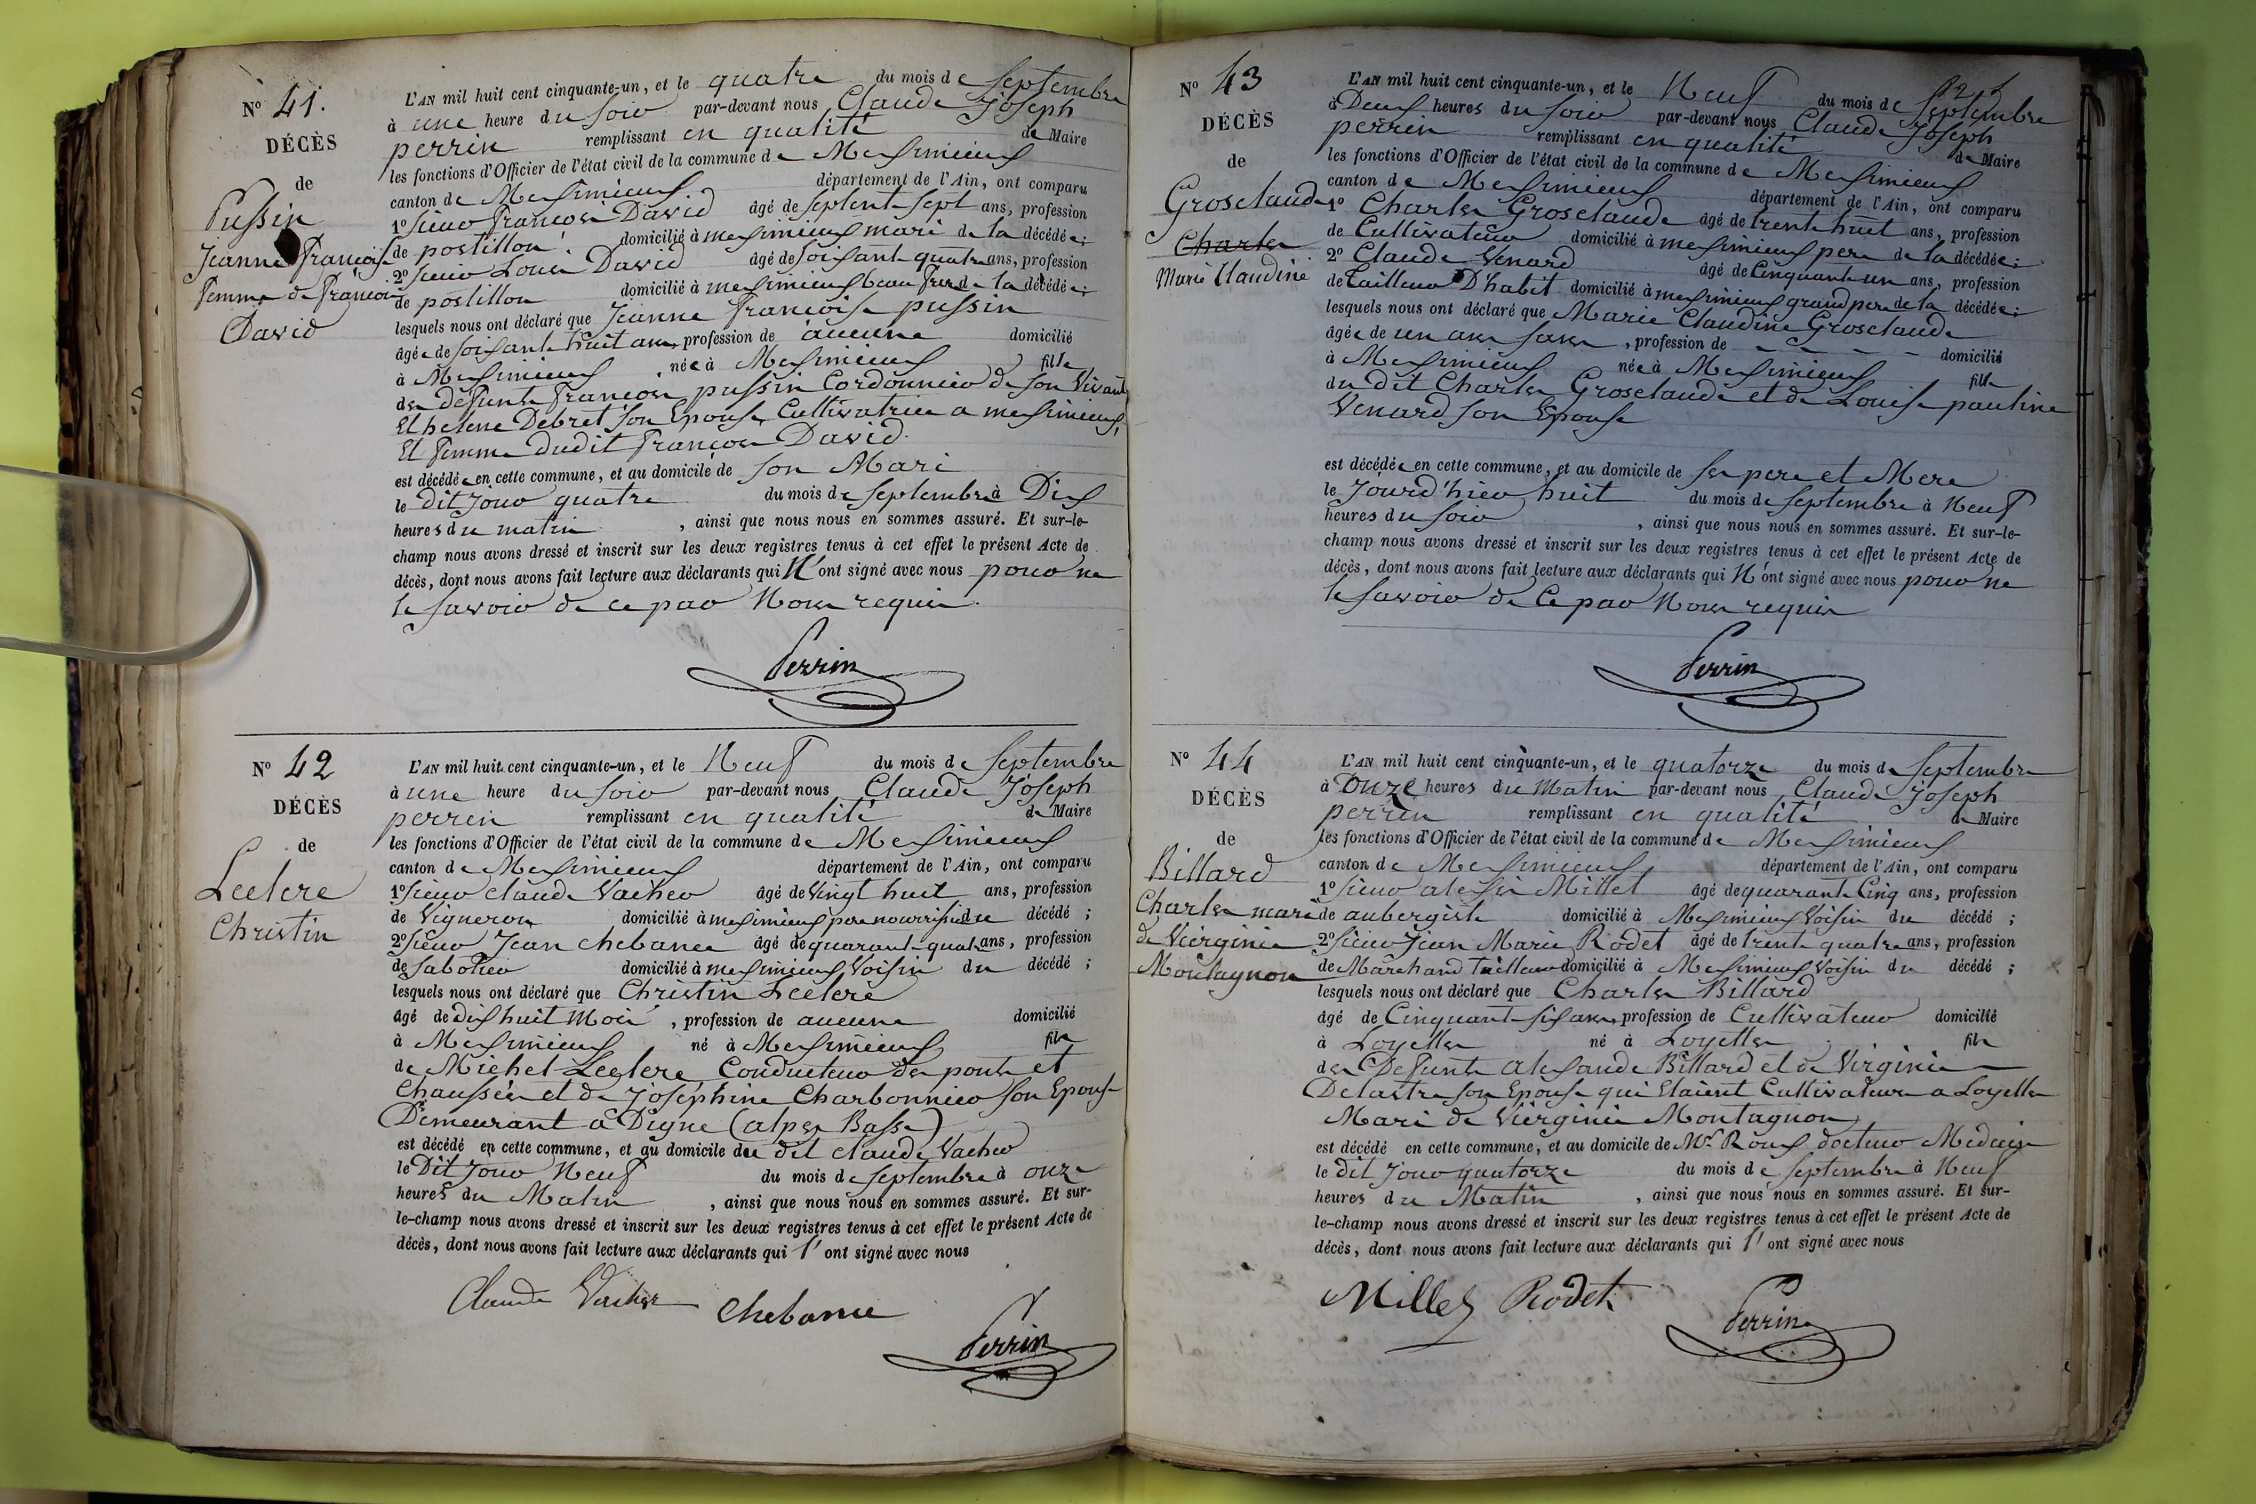 N° 41.
DÉCÈS
de
Pussin
Jeanne Françoise
Femme de François
David
L'AN mil huit cent cinquante-un, et le quatre du mois de Septembre
à une heure du soir par-devant nous Claude Joseph
perrin remplissant en qualité de Maire
les fonctions d'Officier de l'état civil de la commune de Meximieux
canton de Meximieux département de l'Ain, ont comparu
1° sieur François David âgé de septente sept ans, profession
de postillon domicilié à meximieux mari de la décédée;
2° sieur Louis David âgé de soisante quatre ans, profession
de postillon domicilié à meximieux beau frere de la décédée;
lesquels nous ont déclaré que Jeanne Françoise pussin
âgée de soisante huit ans, profession de aucune domicilié
à Meximieux, née à Meximieux fille
des defunts François pussin Cordonnier de son Vivant
Et helene Debret son Epouse Cultivatrice a meximieux,
Et Femme dudit François David.
est décédée en cette commune, et au domicile de son Mari
le dit jour quatre du mois de septembre à Dix
heures du matin, ainsi que nous nous en sommes assuré. Et sur-le-
champ nous avons dressé et inscrit sur les deux registres tenus à cet effet le présent Acte de
décès, dont nous avons fait lecture aux déclarants qui N'ont signé avec nous pour ne
le savoir de ce par Nous requis.
Perrin
N° 42
DÉCÈS
de
Leclere
Christin
L'AN mil huit cent cinquante-un, et le Neuf du mois de Septembre
à une heure du soir par-devant nous Claude Joseph
perrin remplissant en qualité de Maire
les fonctions d'Officier de l'état civil de la commune de Meximieux
canton de Meximieux département de l'Ain, ont comparu
1° sieur claude Vacher âgé de Vingt huit ans, profession
de Vigneron domicilié à meximieux pere nourrisier du décédé;
2° sieur Jean chebance âgé de quarante quatre ans, profession
de sabotier domicilié à meximieux Voisin du décédé;
lesquels nous ont déclaré que Christin Leclere
âgé de dix huit Mois, profession de aucune domicilié
à Meximieux né à Meximieux fils
de Michel Leclere Conducteur des ponts et
chaussées et de Joséphine Charbonnier son Epouse
Demeurant à Digne (alpes Basse)
est décédé en cette commune, et au domicile du dit claude Vacher
le Dit Jour Neuf du mois de septembre à onze
heures du Matin, ainsi que nous nous en sommes assuré. Et sur-
le-champ nous avons dressé et inscrit sur les deux registres tenus à cet effet le présent Acte de
décès, dont nous avons fait lecture aux déclarants qui l'ont signé avec nous
Claude Vacher chebance
Perrin
N° 43
DÉCÈS
de
Grosclaude
Charles
Marie Claudine
L'AN mil huit cent cinquante-un, et le Neuf du mois de Septembre
à Deux heures du soir par-devant nous Claude Joseph
perrin remplissant en qualité de Maire
les fonctions d'Officier de l'état civil de la commune de Meximieux
canton de Meximieux département de l'Ain, ont comparu
1° Charles Grosclaude âgé de trente huit ans, profession
de Cultivateur domicilié à meximieux pere de la décédée;
2° Claude Venard âgé de Cinquante un ans, profession
de Tailleur D'habit domicilié à meximieux grand pere de la décédée;
lesquels nous ont déclaré que Marie Claudine Grosclaude
âgée de un ans sans, profession de domicilié
à Meximieux née à Meximieux fille
du dit Charles Grosclaude et de Louise pauline
Venard son Epouse
est décédée en cette commune, et au domicile de ses pere et Mere
le Jourd'hier huit du mois de septembre à Neuf
heures du soir, ainsi que nous nous en sommes assuré. Et sur-le-
champ nous avons dressé et inscrit sur les deux registres tenus à cet effet le présent Acte de
décès, dont nous avons fait lecture aux déclarants qui N'ont signé avec nous pour ne
le savoir de Ce par Nous requis
Perrin
N° 44
DÉCÈS
de
Billard
Charles mari
de Virginie
Montagnon
L'AN mil huit cent cinquante-un, et le quatorze du mois de Septembre
à Onze heures du Matin par-devant nous Claude Joseph
perrin remplissant en qualité de Maire
les fonctions d'Officier de l'état civil de la commune de Meximieux
canton de Meximieux département de l'Ain, ont comparu
1° sieur alexis Millet âgé de quarante Cinq ans, profession
de aubergiste domicilié à Meximieux Voisin du décédé;
2° sieur Jean Marie Rodet âgé de trente quatre ans, profession
de Marchand Tailleur domicilié à Meximieux Voisin du décédé;
lesquels nous ont déclaré que Charles Billard
âgé de Cinquante six ans, profession de Cultivateur domicilié
à Loyettes né à Loyettes fils
des Defunts alexandre Billard et de Virginie
Delastre son Epouse qui Etaient Cultivateurs a Loyettes
Mari de Virginie Montagnon
est décédé en cette commune, et au domicile de Mr Roux docteur Medecin
le dit jour quatorze du mois de septembre à Neuf
heures du Matin, ainsi que nous nous en sommes assuré. Et sur-
le-champ nous avons dressé et inscrit sur les deux registres tenus à cet effet le présent Acte de
décès, dont nous avons fait lecture aux déclarants qui l'ont signé avec nous
Millet Rodet
Perrin